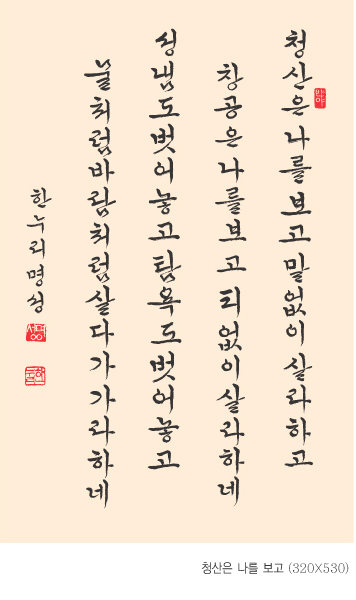 청산은나를보고말없이살라하고
창공은나를보고티없이살라하네
성냄도벗어놓고탐욕도벗어놓고
물처럼바람처럼살다가가라하네
한누리명성
청산은 나를 보고 (320X530)